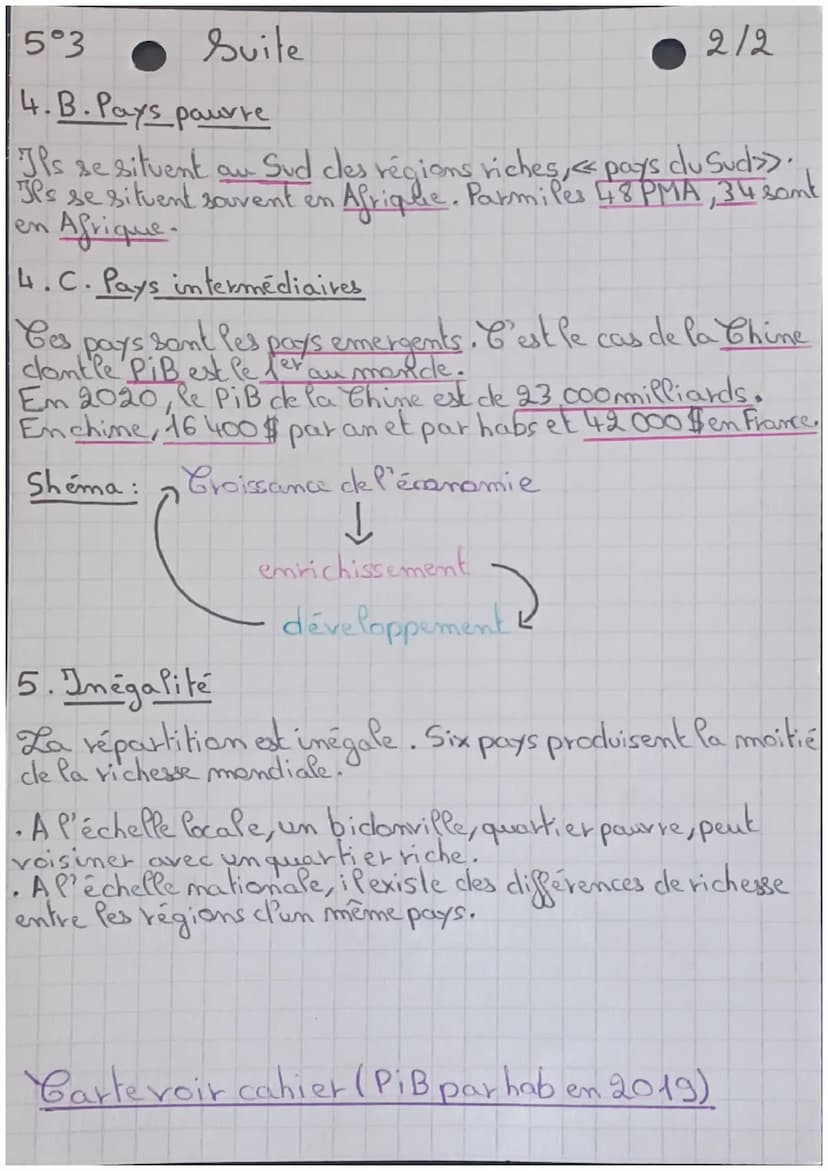 5°3 Suite 2/2
4.B. Pays pauvre
Ils se situent au Sud des régions riches, « pays du Sud».
Ils se situent souvent en Afrique. Parmi les 48 PMA, 34 sont
en Afrique.
4.C. Pays intermédiaires
Ces pays sont les pays emergents. C'est le cas de la Chine
dont le PiB est le 1er au monde.
En 2020, le PiB de la Chine est de 23 000 milliards.
En chine, 16 400 $ par an et par habs et 42 000 $ en France.
Shéma : Croissance de l'économie
↓
enrichissement
développement
5. Inégalité
La répartition est inégale. Six pays produisent la moitié
de la richesse mondiale.
. A l'échelle locale, un bidonville, quartier pauvre, peut
voisiner avec un quartier riche.
. A l'échelle nationale, il existe des différences de richesse
entre les régions d'un même pays.
Carte voir cahier (PiB par hab en 2019)